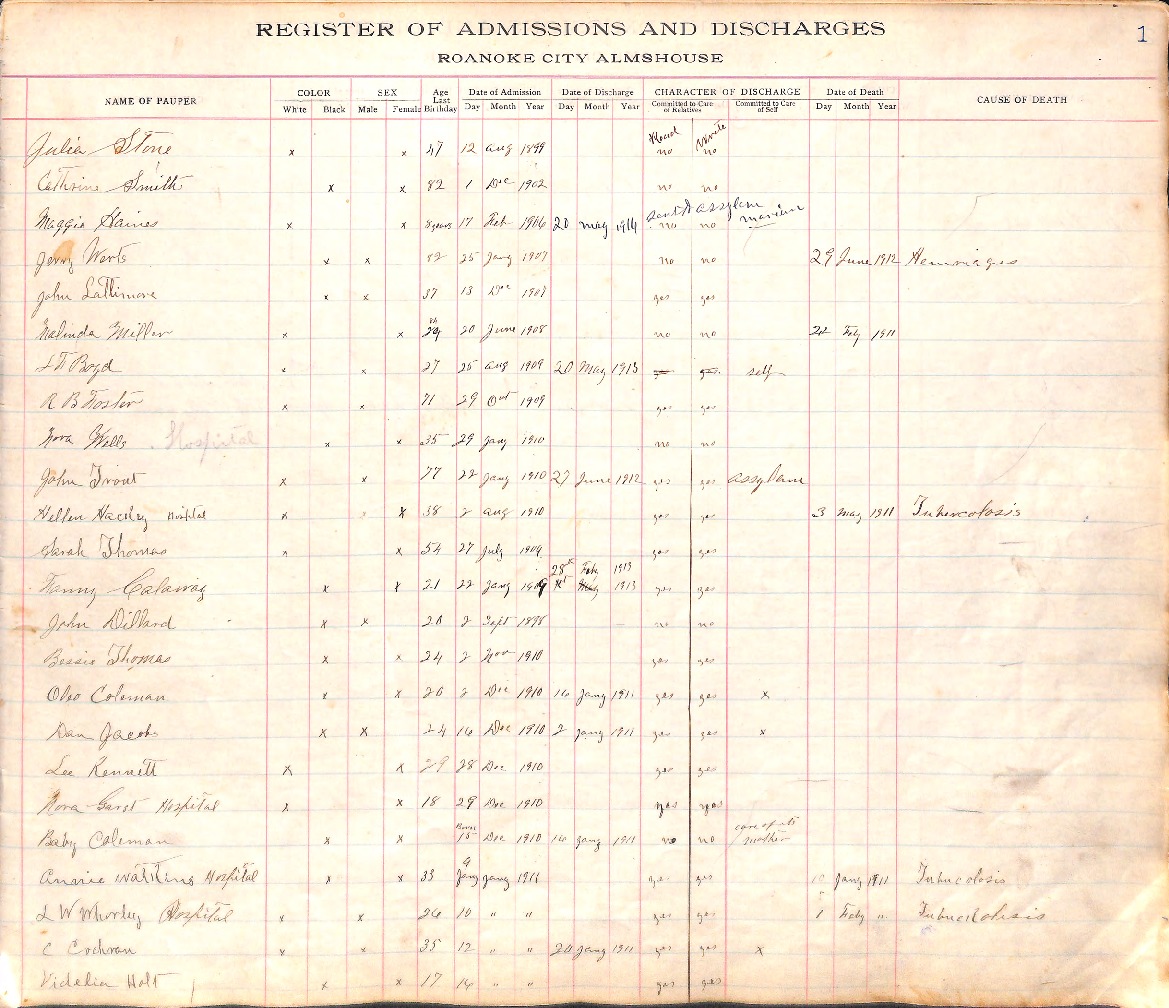 REGISTER OF ADMISSIONS AND DISCHARGES
1
ROANOKE CITY ALMSHOUSE
NAME OF PAUPER COLOR SEX Age Last Birthday Date of Admission Date of Discharge CHARACTER OF DISCHARGE Date of Death CAUSE OF DEATH
White Black Male Female Day Month Year Day Month Year Committed to Care of Relatives Committed to Care of Self Day Month Year
Read Write
Julia Stone x x 47 12 Aug 1899 no no
Cathrine Smith x x 82 1 Dec 1902 no no
Maggie Haines x x 8 years 17 Feb 1906 20 May 1914 sent to assylam marion no no
Jerry Werts x x 82 25 Jany 1907 no no 29 June 1912 Hemriages
John Lattimore x x 37 13 Dec 1907 yes yes
Malinda Miller x x 20 June 1908 no no 24 Feby 1911
Boyd x x 27 25 Aug 1909 20 May 1913 yes yes self
R B Foster x x 71 29 Oct 1909 yes yes
Nora Wells Hospital x x 35 29 Jany 1910 no no
John Trout x x 77 22 Jany 1910 27 June 1912 yes yes assylam
Hellen Hackly Hospital x x x 38 2 Aug 1910 yes yes 3 May 1911 Tubercolosis
Sarah Thomas x x 54 27 July 1909 yes yes
28 Feb 1913
Fanny Calaway x x 21 22 Jany 1909 May 1913 yes yes
John Dillard x x 20 2 Sept 1898 no no
Bessie Thomas x x 24 2 Nov 1910 yes yes
Oleo Coleman x x 20 2 Dec 1910 16 Jany 191 yes yes x
Dan Jacobs x x 24 16 Dec 1910 2 Jany 1911 yes yes x
Lee Kennett x x 29 28 Dec 1910 yes yes
Nora Garst Hospital x x 18 29 Dec 1910 yes yes
Baby Coleman x x Born 15 Dec 1910 16 Jany 1911 no no care of its mother
Annie Watkins Hospital x x 33 9 Jany Jany 1911 yes yes 10 Jany 1911 Tubucolosis
L W Whorley Hospital x x 26 10 " " yes yes 1 Feby " Tubuculosis
C Cochran x x 35 12 " " 20 Jany 1911 yes yes x
Videlia Holt x x 17 14 " " yes yes